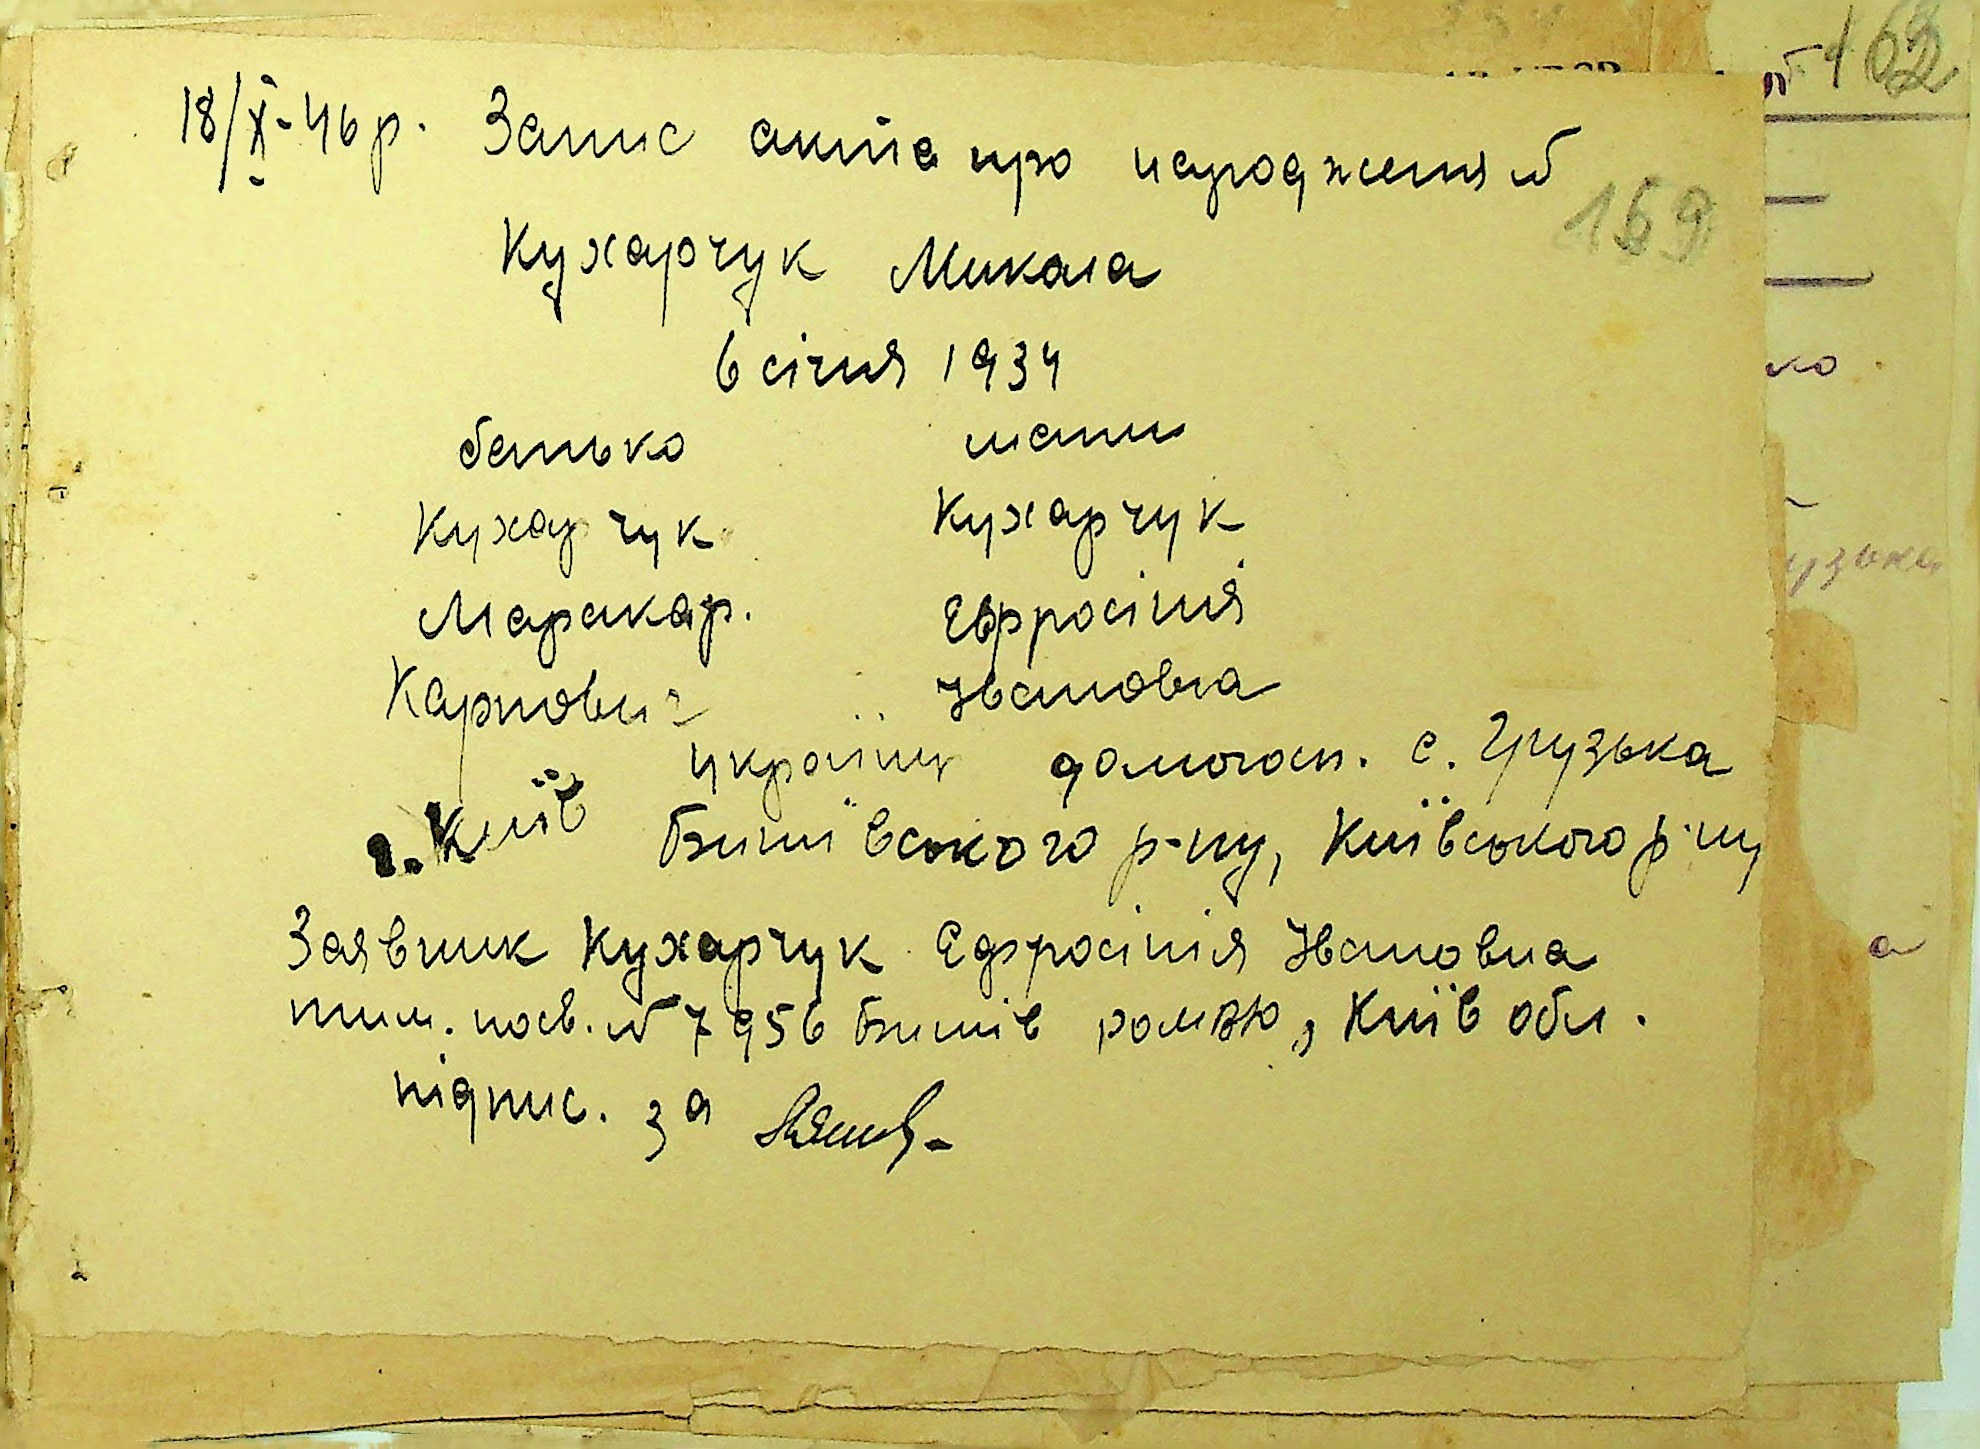 162
18/X-46 р. Запис акта про народження №
159
Кухарчук Микола
6 січня 1934
батько мати
Кухарчук Кухарчук
Маракар. Євфросінія
Карпович Івановна
україн домогосп. с. Грузька
г. Київ Бишівського р-ну, Київського р-ну
Заявник Кухарчук Єфросінія Івановна
тим. посв. № 7956 Бишів Київ обл.
підпис. за